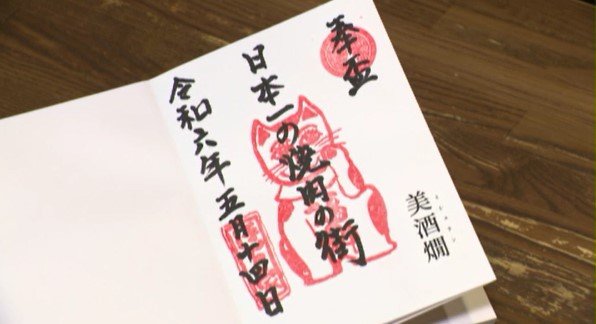 奉盃
日本一の焼肉の街
令和六年五月十四日
美酒燗